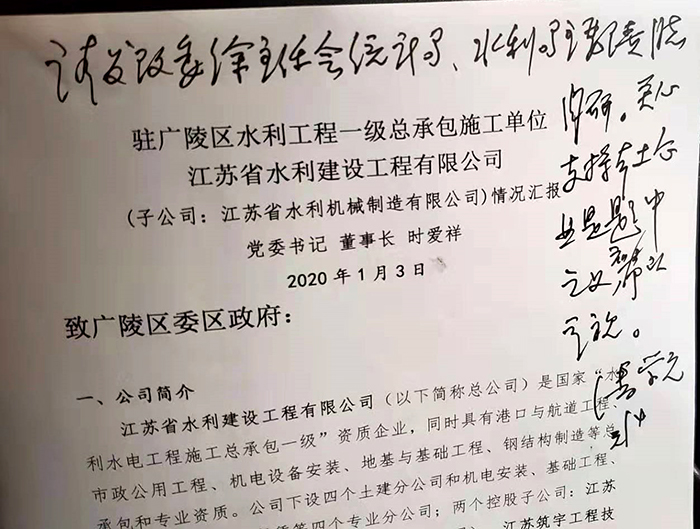 请发改委徐主任会统计局、水利局
阅研。关心
支持本土企
业是题中
之义
驻广陵区水利工程一级总承包施工单位
江苏省水利建设工程有限公司
(子公司：江苏省水利机械制造有限公司)情况汇报
党委书记 董事长 时爱祥
2020 年 1 月 3 日
致广陵区委区政府：
一、公司简介
江苏省水利建设工程有限公司（以下简称总公司）是国家“水
利水电工程施工总承包一级”资质企业，同时具有港口与航道工程、
市政公用工程、机电设备安装、地基与基础工程、钢结构制造等总
承包和专业资质。公司下设四个土建分公司和机电安装、基础工程、
赁等四个专业分公司；两个控股子公司：江苏
江苏筑宇工程技